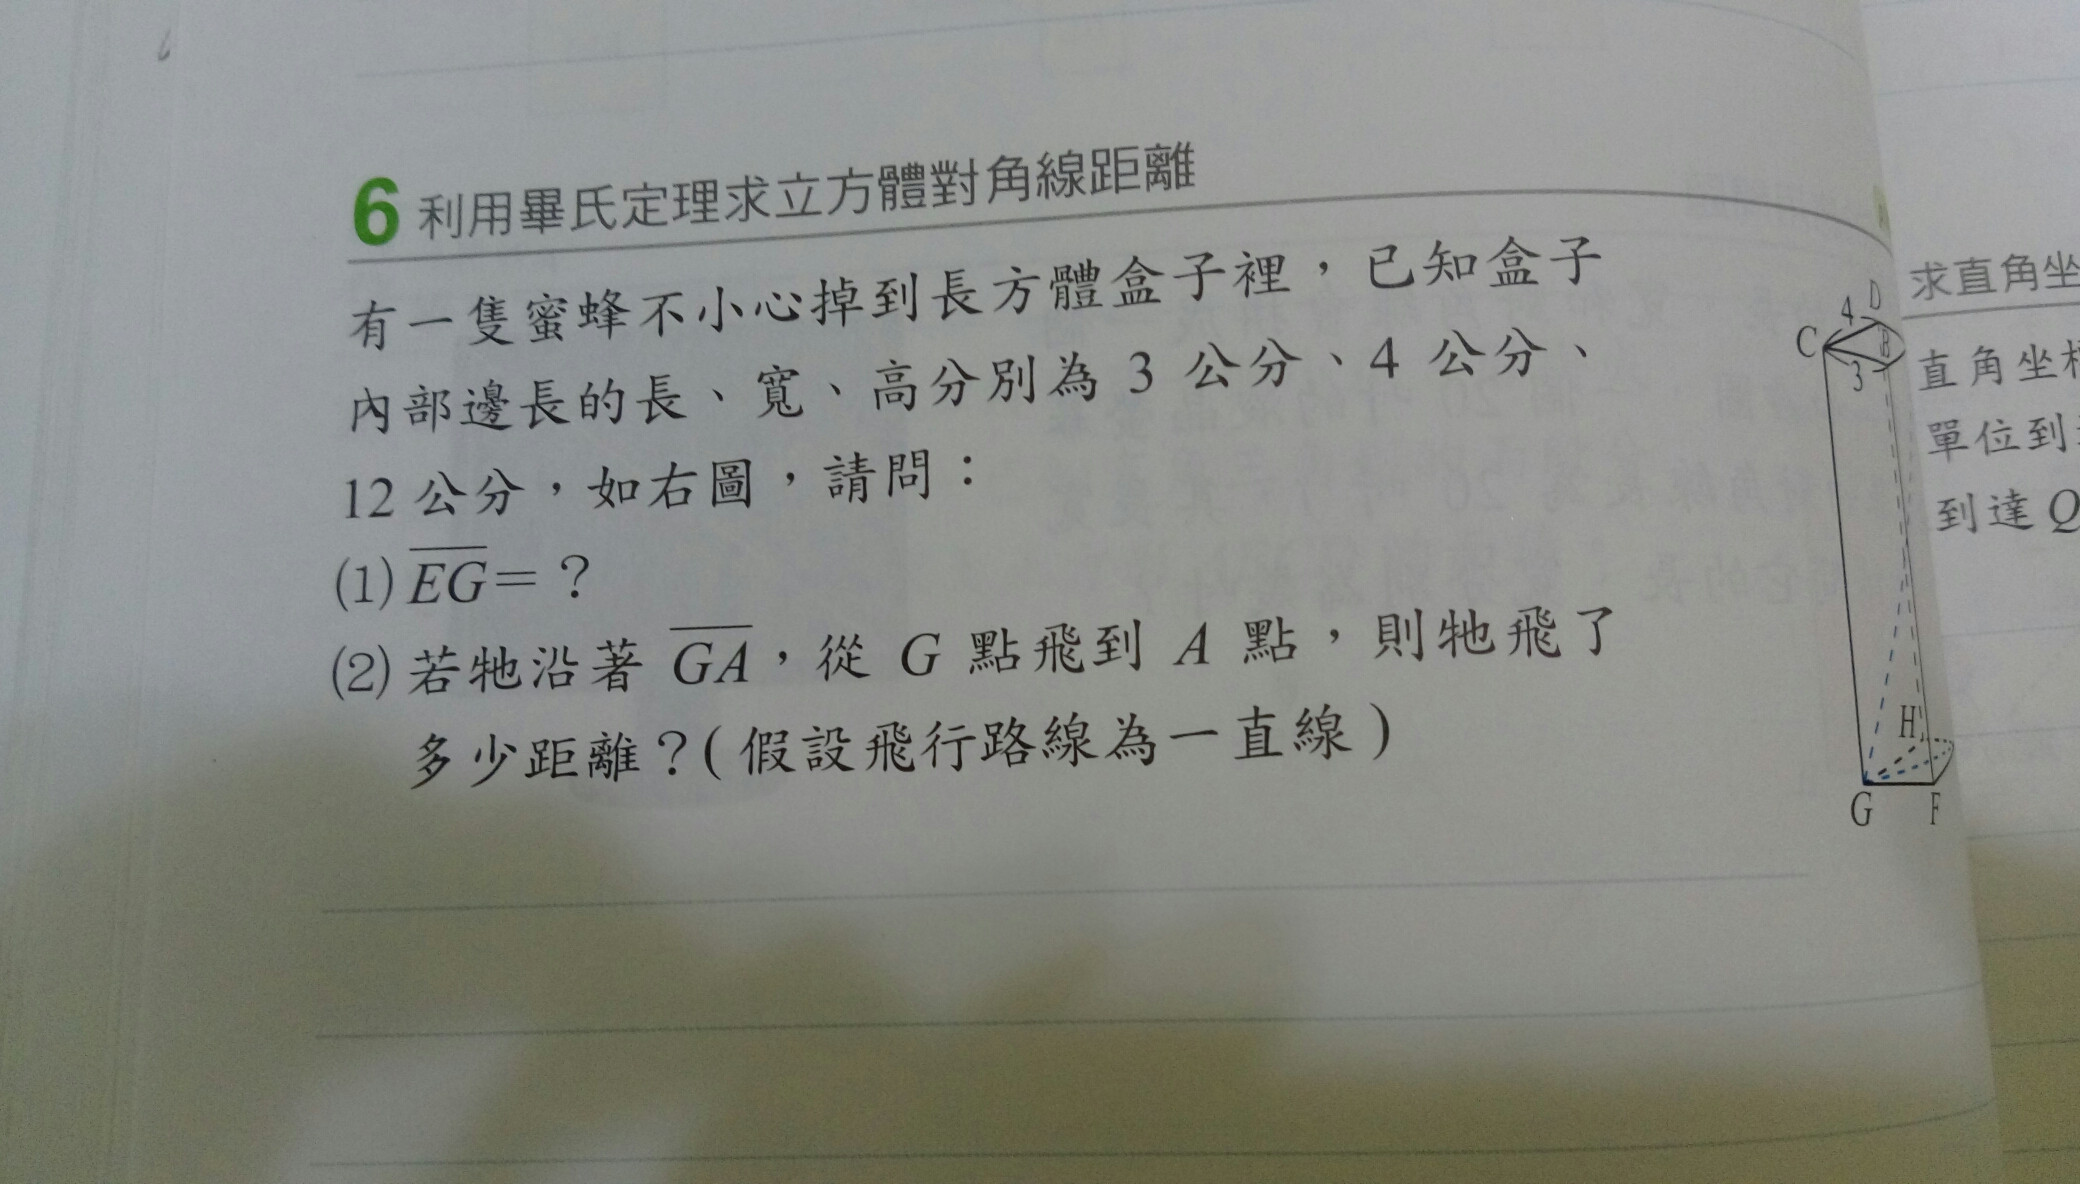 6 利用畢氏定理求立方體對角線距離
有一隻蜜蜂不小心掉到長方體盒子裡，已知盒子
內部邊長的長、寬、高分別為 3 公分、4 公分、
12 公分，如右圖，請問：
(1) EG＝？
(2) 若牠沿著 GA，從 G 點飛到 A 點，則牠飛了
多少距離？(假設飛行路線為一直線)
D
4
C
B
3
H
G F
求直角坐
直角坐
單位到
到達 Q